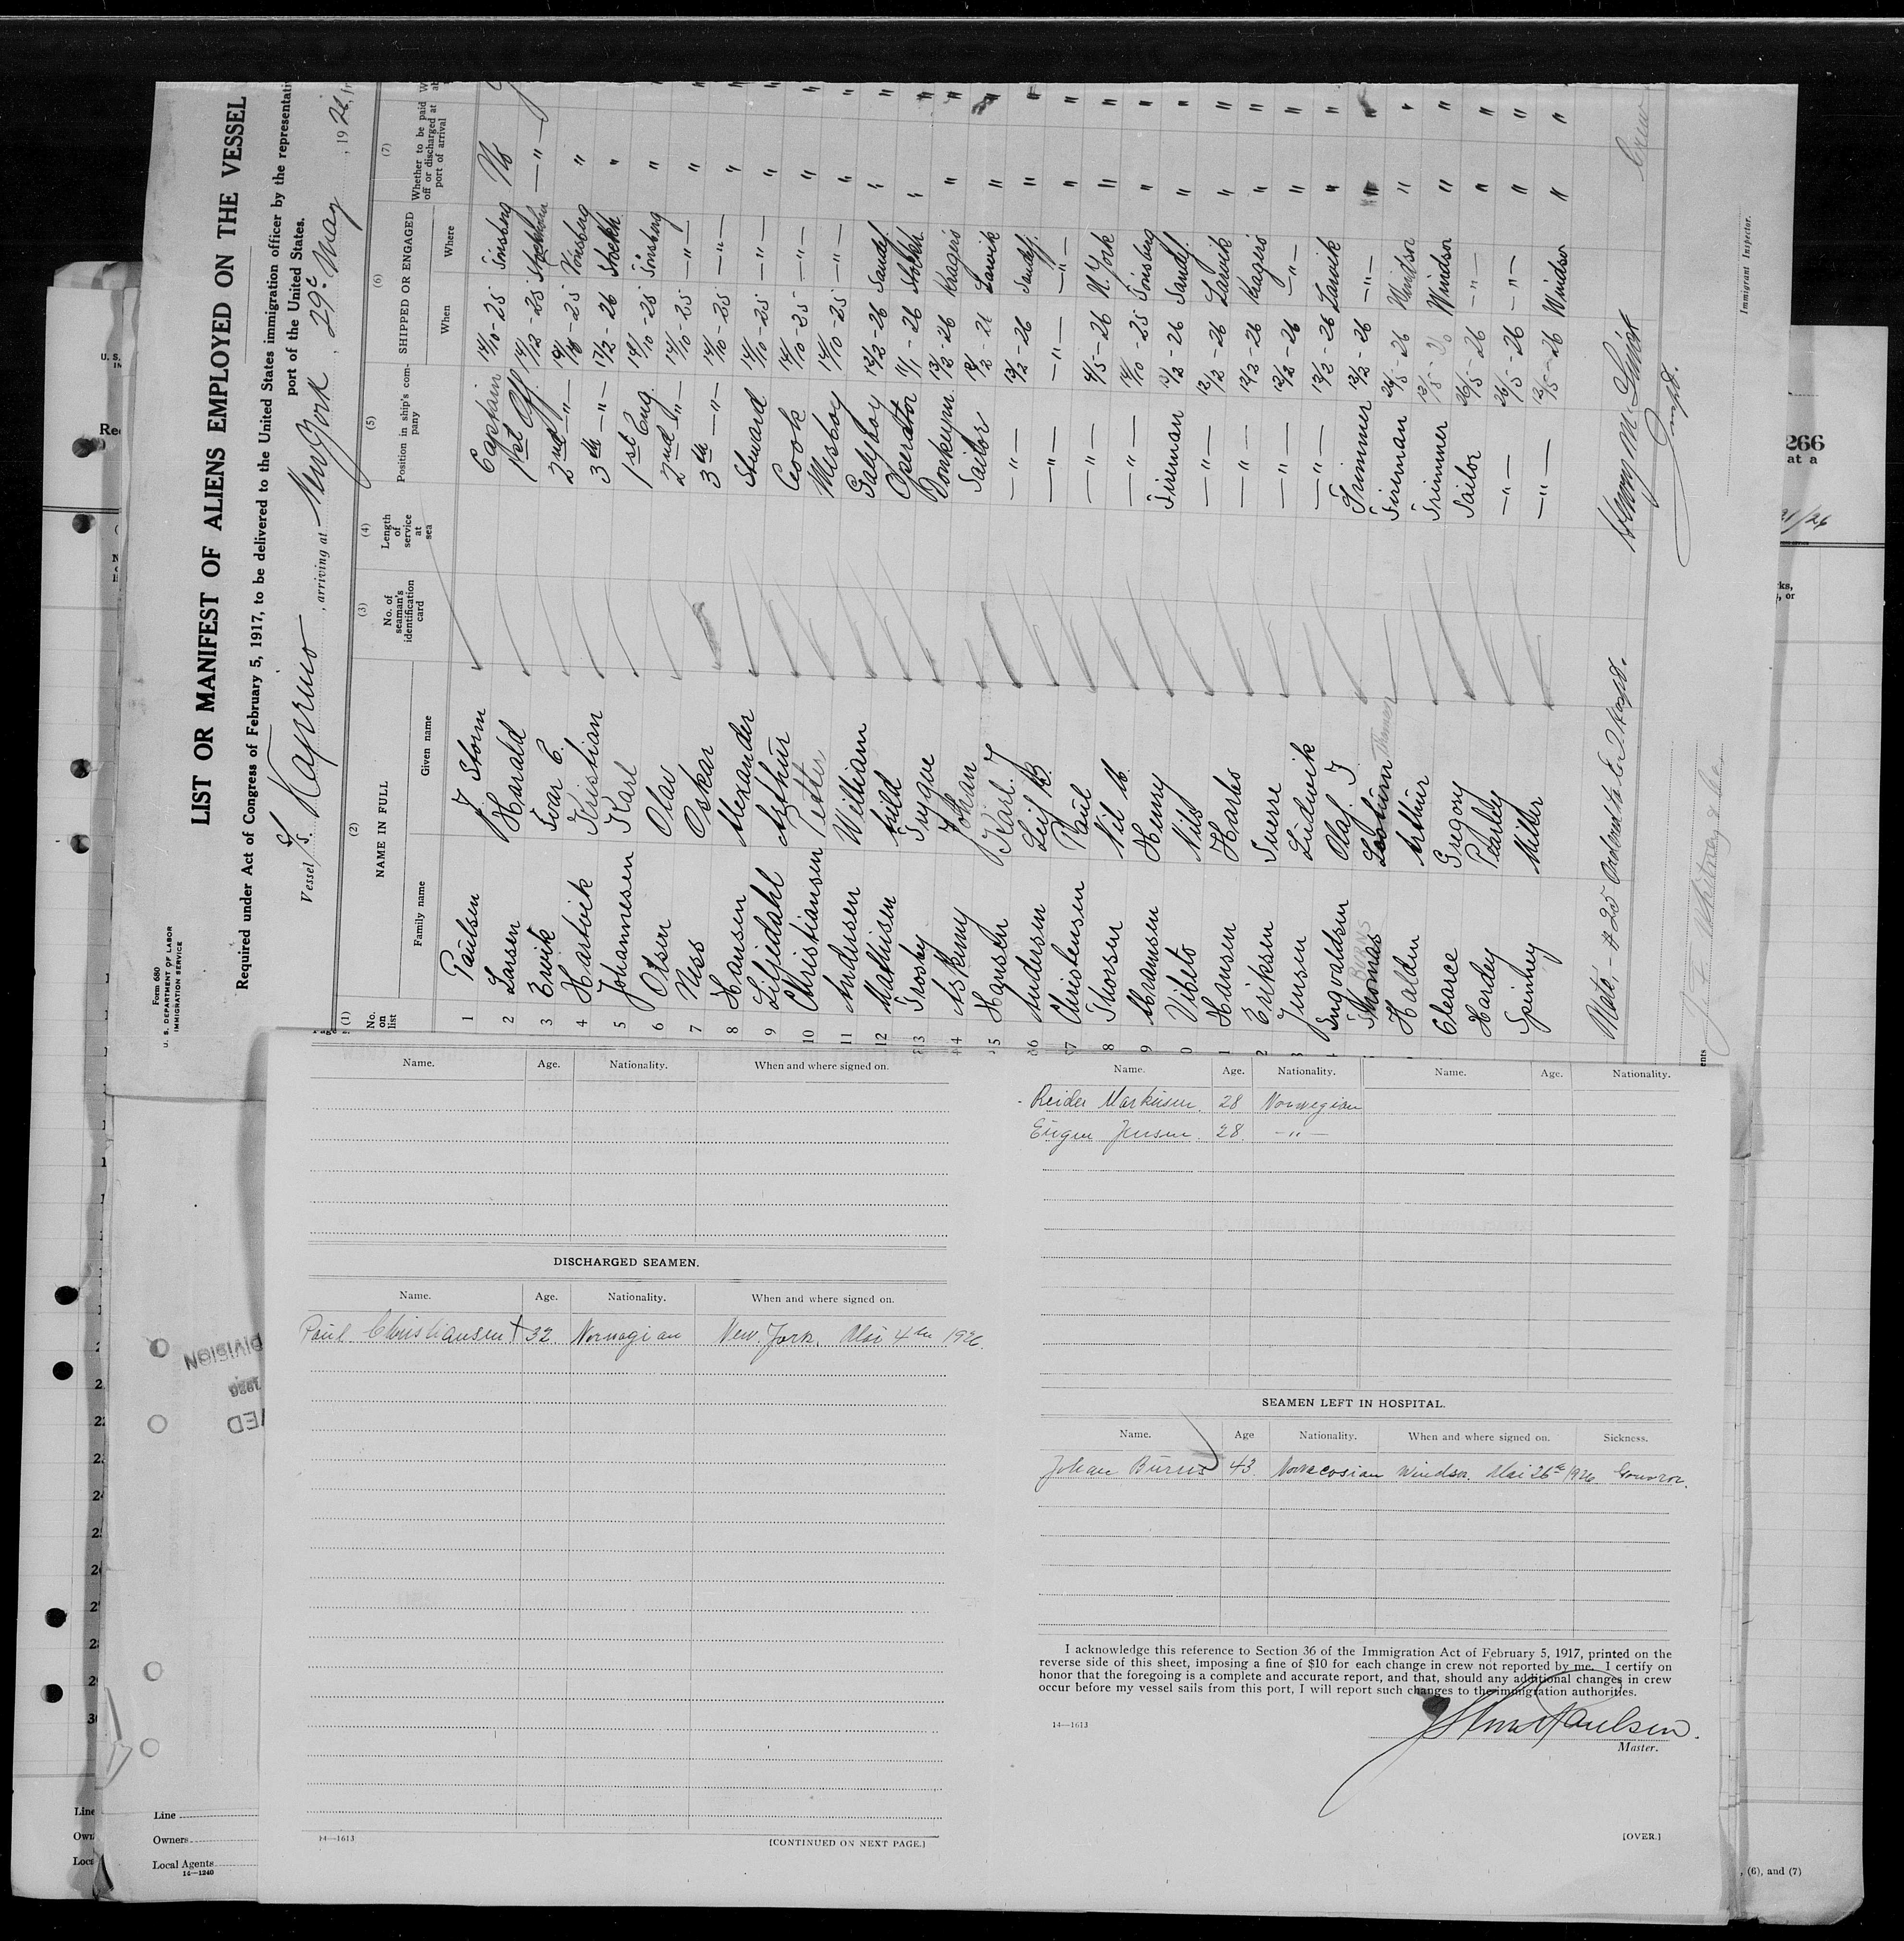 Form 680
U. S. DEPARTMENT OF LABOR
IMMIGRATION SERVICE
LIST OR MANIFEST OF ALIENS EMPLOYED ON THE VESSEL
Required under Act of Congress of February 5, 1917, to be delivered to the United States immigration officer by the representati
port of the United States.
Vessel S/S. Kapruno, arriving at New York, 29e May, 1926,
(1) (2) (3) (4) (5) (6) (7)
No. on list NAME IN FULL No. of seaman's identification card Length of service at sea Position in ship's company SHIPPED OR ENGAGED Whether to be paid off or discharged at port of arrival
Family name Given name When Where
1 Paulsen J. Storm Captain 14/10-25 Tönsberg No
2 Larsen Harald 1st Off. 14/12-25 Stockholm —"—
3 Ervik Ivar E. 2nd —"— 14/10-25 Tönsberg "
4 Hartvik Kristian 3th —"— 17/2-26 Stockh. "
5 Johannesen Karl 1st Eng. 14/10-25 Tönsberg "
6 Olsen Olav 2nd —"— 14/10-25 —"— "
7 Niss Oskar 3th —"— 14/10-25 —"— "
8 Hansen Alexander Steward 14/10-25 —"— "
9 Liljedahl Arthur Coook 14/10-25 —"— "
10 Christiansen Petter Mesboy 14/10-25 —"— "
11 Andersen William Galyboy 12/2-26 Sandef. "
12 Mathisen Arild Operator 11/1-26 Stockh. "
13 Trosby Trygve Donkeym. 13/2-26 Kragerö "
14 Askimy Johan Sailor 12/2-26 Larvik "
15 Hansen Karl. J —"— 13/2-26 Sandefj. "
16 Andersen Leif B. —"— —"— —"— "
17 Christensen Paul —"— 4/5-26 N. York "
18 Thorsen Nils M. —"— 14/10-25 Tönsberg "
19 Abramsen Henry Firman 13/2-26 Sandf. "
Viblets Nils —"— 12/2-26 Larvik "
1 Hansen Harbs —"— 12/2-26 Kragerö "
2 Eriksen Sverre —"— 12/2-26 —"— "
3 Jensen Ludwik —"— 12/2-26 Larvik "
Ingvaldsen Olaf. J. Trimmer 12/2-26 —"— "
Thomas BURNS Firman 26/5-26 Windsor "
Halden Arthur Trimmer 13/5-26 Windsor "
Clearce Gregory Sailor 26/5-26 —"— "
Hardey Pearley —"— 26/5-26 —"— "
Spinney Miller —"— 13/5-26 Windsor "
Henry M.
Insp.
Crew
Immigrant Inspector.
J. F. Whitney & Co.
Name. Age. Nationality. When and where signed on.
DISCHARGED SEAMEN.
Name. Age. Nationality. When and where signed on.
Paul Christiansen 32 Norwegian New. York, Mai 4de 1926.
14—1613
[CONTINUED ON NEXT PAGE.]
Name. Age. Nationality. Name. Age. Nationality.
Reider Markusen. 28 Norwegian
Eugen Jensen. 28. —"—
SEAMEN LEFT IN HOSPITAL.
Name. Age Nationality. When and where signed on. Sickness.
Johan Burns 43 Novacosian Windsor. Mai 26e 1926 Gonoror.
I acknowledge this reference to Section 36 of the Immigration Act of February 5, 1917, printed on the
reverse side of this sheet, imposing a fine of $10 for each change in crew not reported by me. I certify on
honor that the foregoing is a complete and accurate report, and that, should any additional changes in crew
occur before my vessel sails from this port, I will report such changes to the immigration authorities.
14—1613
J Storm Paulsen.
Master.
[OVER.]
DIVISION
Line
Owners
Local Agents
14—1240
266
at a
21/26
, (6), and (7)